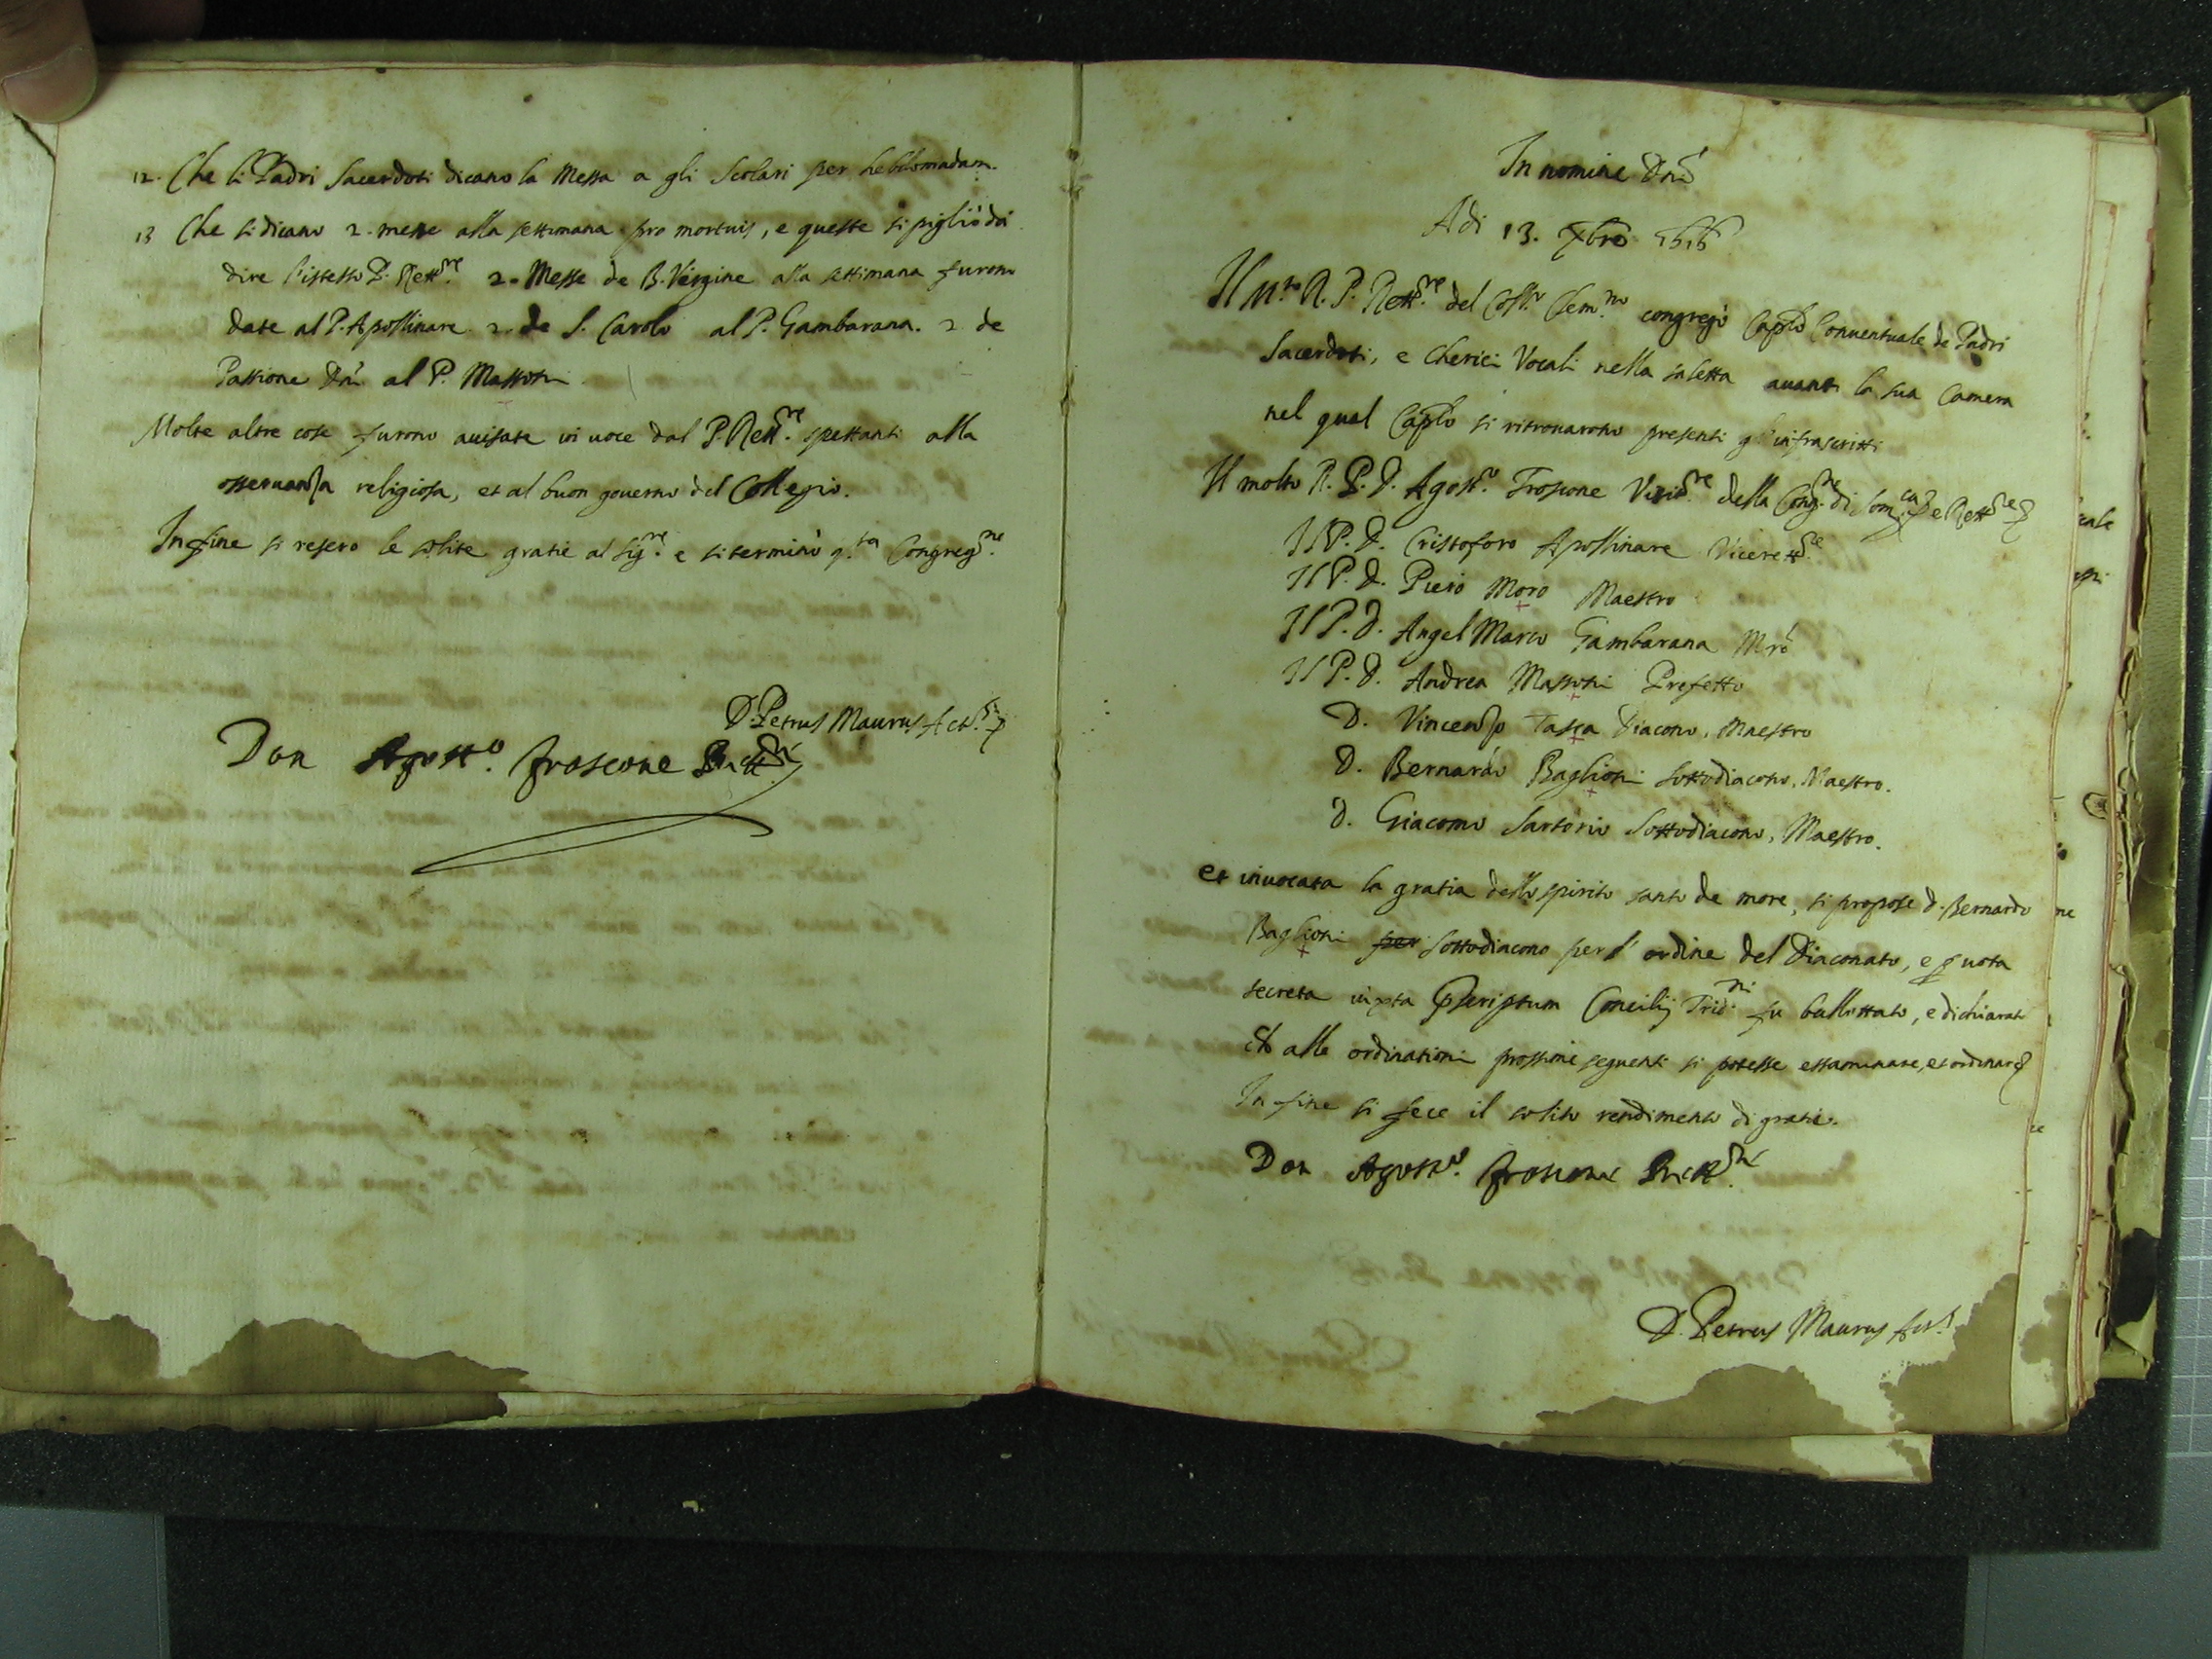 12. Che li Padri Sacerdoti dicano la Messa a gli Scolari per hebdomadam.
13 Che si dicano 2. messe alla settimana pro mortuis, e queste si pigliò da
dire l'istesso P. Rett.re 2. Messe de B. Vergine alla settimana furono
date al P. Apollinare 2. de S. Carolo al P. Gambarana. 2 de
Passione Dni al P. Massotti
Molte altre cose furono auisate in uoce dal P. Rett.re spettanti alla
osseruanza religiosa, et al buon gouerno del Collegio.
In fine si resero le solite gratie al Sig.re e si terminò q.ta Congreg.ne
D. Petrus Maurus Act.s
Don Agost.o froscone Rett.re
In nomine Dni
Adi 13. Xbre 1616
Il M.to R. P. Rett.re del Coll.o Clem.no congregò Caplo Conuentuale de Padri
Sacerdoti, e Cherici Vocali nella saletta auanti la sua Camera
nel qual Caplo si ritrouarono presenti gl'infrascritti
Il molto R. P. D. Agost.o Froscone Visit.re della Cong.ne di Som.ca e Rett.re
Il P. D. Cristoforo Apollinare Vicerett.re
Il P. D. Piero Moro Maestro
Il P. D. Angel Marco Gambarana Mro
Il P. D. Andrea Massotti Prefetto
D. Vincenzo Tasca Diacono, Maestro
D. Bernardo Baglioni sottodiacono, Maestro.
D. Giacomo Sartorio Sottodiacono, Maestro.
et inuocata la gratia dello spirito santo de more, si propose D. Bernardo
Baglioni per sottodiacono per l'ordine del Diaconato, e p uota
secreta iuxta pscriptum Concilij Trid.ni fu ballottato, e dichiarato
ch alle ordinationi prossime seguenti si potesse essaminare, et ordinare
In fine si fece il solito rendimento di gratie.
Don Agost.o froscone Rett.re
D. Petrus Maurus Act.s